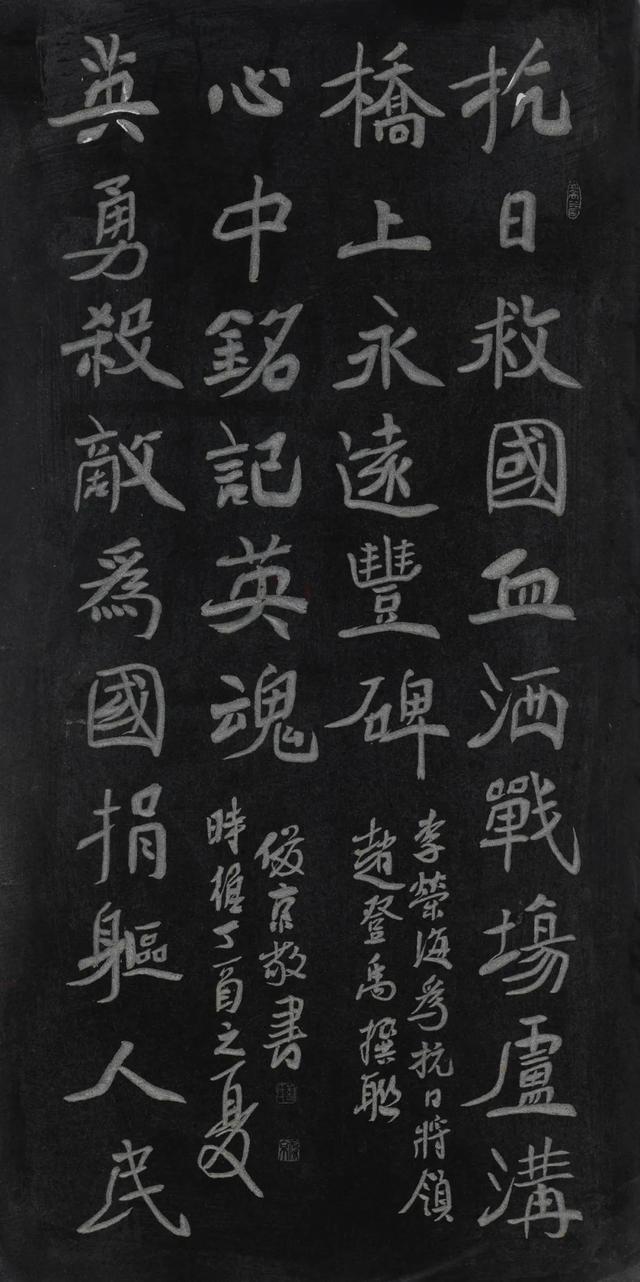 抗日救國血洒戰場盧溝
橋上永遠豐碑
李榮海為抗日將領
趙登禹撰聯
英勇殺敵為國捐軀人民
心中銘記英魂
時值丁酉之夏
京敬書